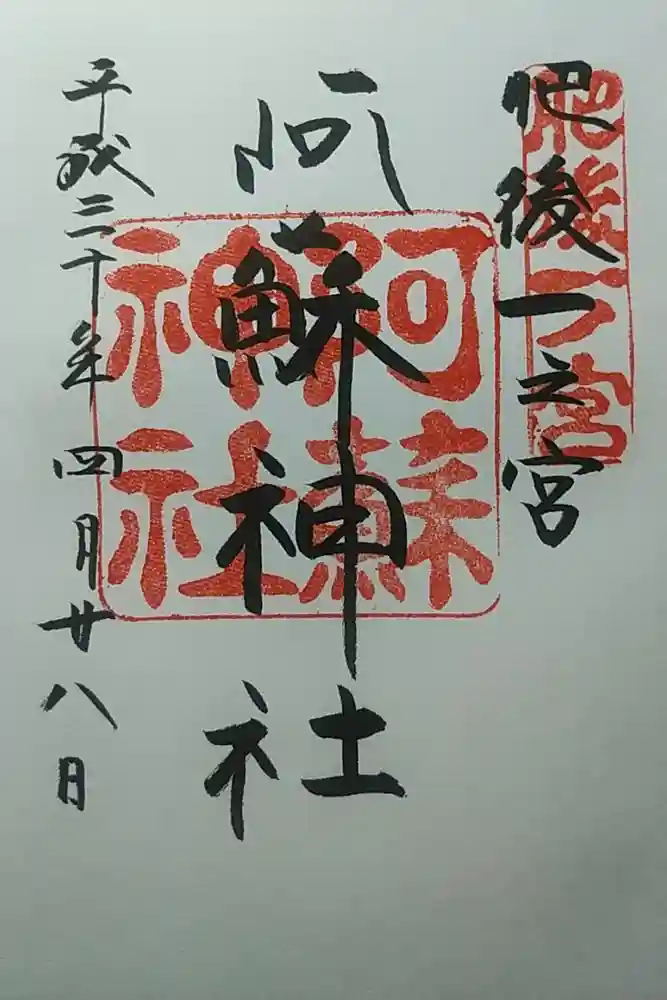 肥後一之宮
肥後一宮
阿蘇神社
阿蘇神社
平成三十年四月廿八日